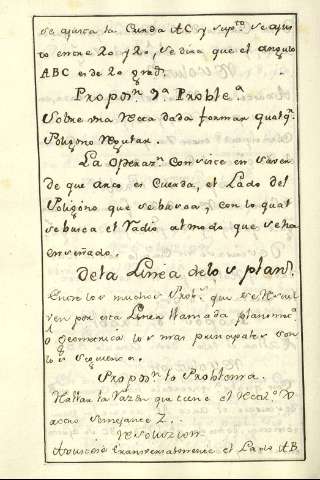 se ajusta la Cuerda AC y sup.to se ajus
to entre 20 y 20, se dira que el angulo
ABC es de 20 grad.s
Propos.n 9.a Proble.a
Sobre una Recta dada formar qualq.r
Poligono Regular.
La Operaz.n Consiste en saver
de que arco es Cuerda, el Lado del
Poligono que se busca, con lo qual
se busca el Radio al modo que se ha
enseñado.
De la Linea de los plan.s
Entre los muchos Prob.s que se Resuel
ven por esta Linea llamada planimetrica
o geometrica los mas principales son
los sequentes.
Propos.n 1.a Problema.
Hallar la Razon que tiene el
semejante Z.
Resoluzion
transversalmente el Lado AB